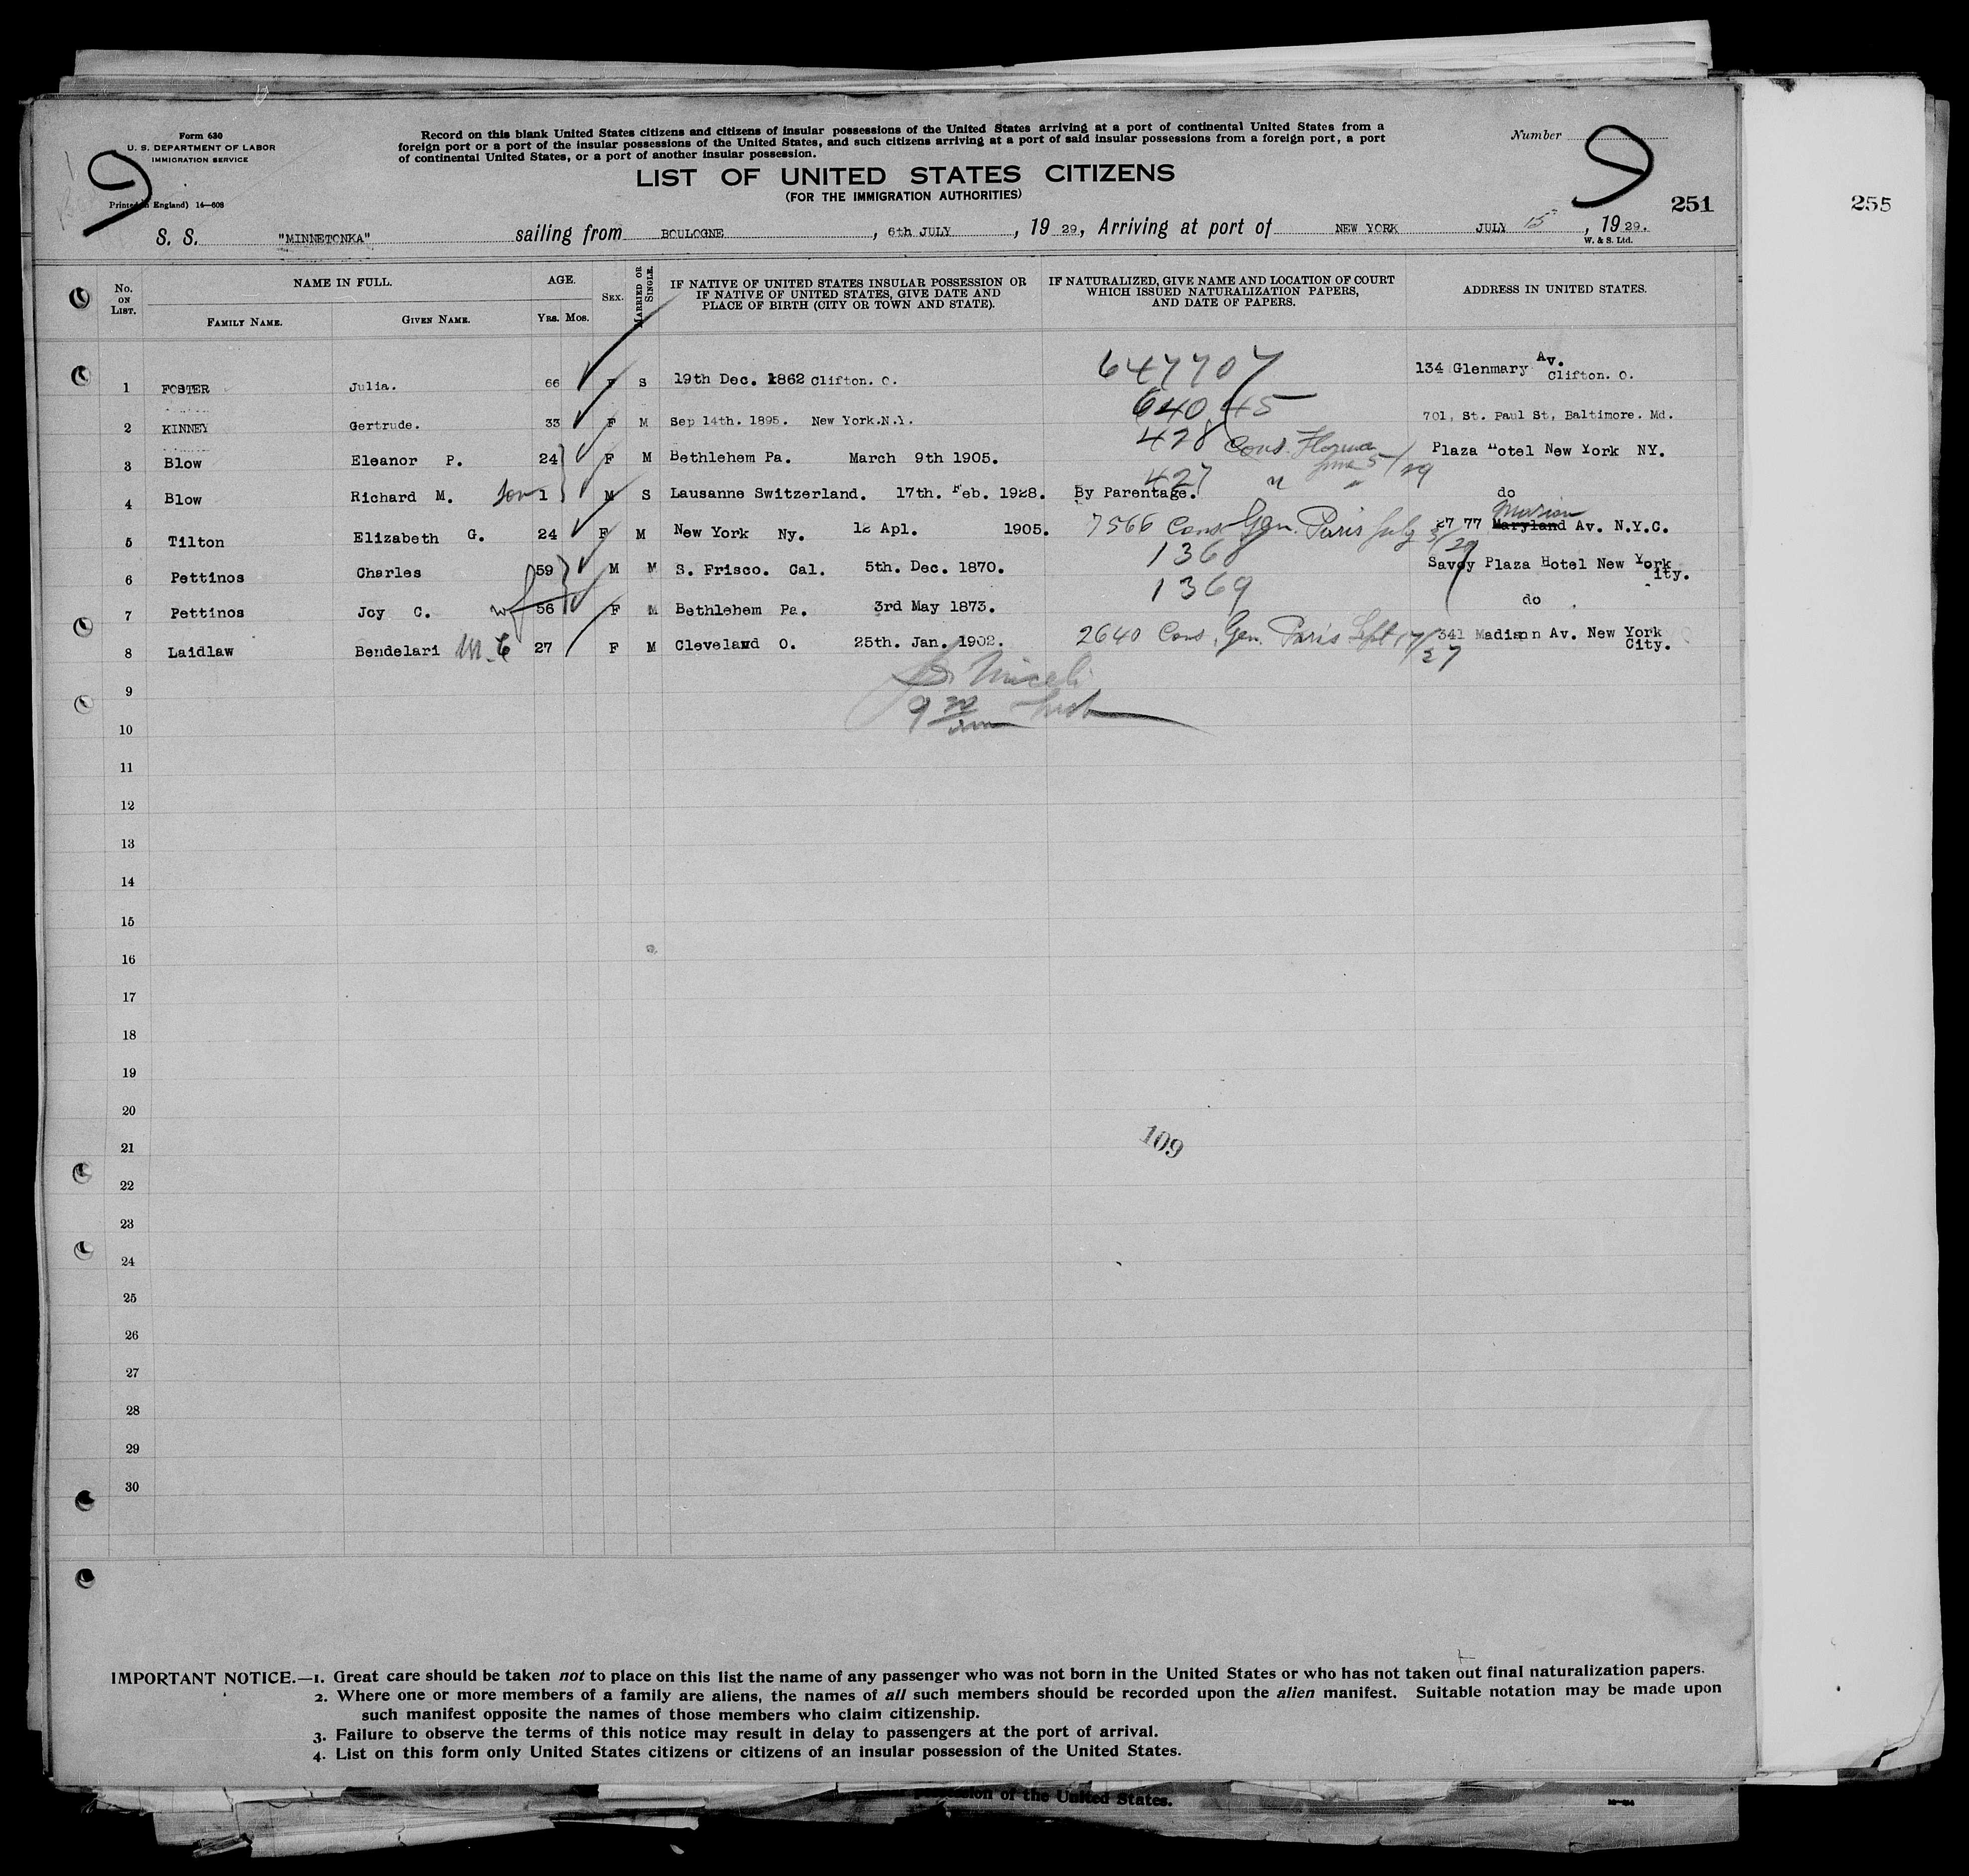 Form 630
U. S. DEPARTMENT OF LABOR
IMMIGRATION SERVICE
Record on this blank United States citizens and citizens of insular possessions of the United States arriving at a port of continental United States from a
foreign port or a port of the insular possessions of the United States, and such citizens arriving at a port of said insular possessions from a foreign port, a port
of continental United States, or a port of another insular possession.
Number
9
9
LIST OF UNITED STATES CITIZENS
(FOR THE IMMIGRATION AUTHORITIES)
Printed in England) 14—608
251
255
S. S. "MINNETONKA" sailing from BOULOGNE, 6th JULY, 19 29, Arriving at port of NEW YORK JULY 15, 19 29.
W. & S. Ltd.
No. ON LIST. NAME IN FULL. AGE. SEX. MARRIED OR SINGLE. IF NATIVE OF UNITED STATES INSULAR POSSESSION OR IF NATIVE OF UNITED STATES, GIVE DATE AND PLACE OF BIRTH (CITY OR TOWN AND STATE). IF NATURALIZED, GIVE NAME AND LOCATION OF COURT WHICH ISSUED NATURALIZATION PAPERS, AND DATE OF PAPERS. ADDRESS IN UNITED STATES.
FAMILY NAME. GIVEN NAME. YRS. MOS.
1 FOSTER Julia. 66 F S 19th Dec. 1862 Clifton. O. 647707 134 Glenmary Av. Clifton. O.
2 KINNEY Gertrude. 33 F M Sep 14th. 1895. New York.N.Y. 640,45 701, St. Paul St, Baltimore. Md.
3 Blow Eleanor P. 24 F M Bethlehem Pa. March 9th 1905. 428 Cons. June 5/29 Plaza Hotel New York NY.
4 Blow Richard M. son 1 M S Lausanne Switzerland. 17th. Feb. 1928. By Parentage. 427 " " do
5 Tilton Elizabeth G. 24 F M New York Ny. 12 Apl. 1905. 7566 Cons Gen. Paris July 3/29 27 77 Maryland Marion Av. N.Y.C.
6 Pettinos Charles 59 M M S. Frisco. Cal. 5th. Dec. 1870. 1368 Savoy Plaza Hotel New York ity.
7 Pettinos Joy C. wf 56 F M Bethlehem Pa. 3rd May 1873. 1369 do .
8 Laidlaw Bendelari M.C 27 F M Cleveland O. 25th. Jan. 1902. 2640 Cons. Gen. Paris Sept 17/27 341 Madison Av. New York City.
9
10
11
12
13
14
15
16
17
18
19
20
21
109
22
23
24
25
26
27
28
29
30
IMPORTANT NOTICE.—1. Great care should be taken not to place on this list the name of any passenger who was not born in the United States or who has not taken out final naturalization papers.
2. Where one or more members of a family are aliens, the names of all such members should be recorded upon the alien manifest. Suitable notation may be made upon
such manifest opposite the names of those members who claim citizenship.
3. Failure to observe the terms of this notice may result in delay to passengers at the port of arrival.
4. List on this form only United States citizens or citizens of an insular possession of the United States.
of the United States.